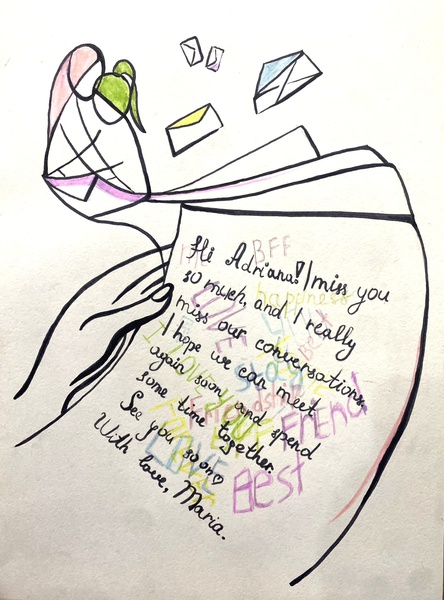 Hi Adriana! I miss you
so much, and I really
miss our conversations.
I hope we can meet
again soon and spend
some time together.
See you soon♡
With love, Maria.
BFF
happiness
Friendship
Friend
Best